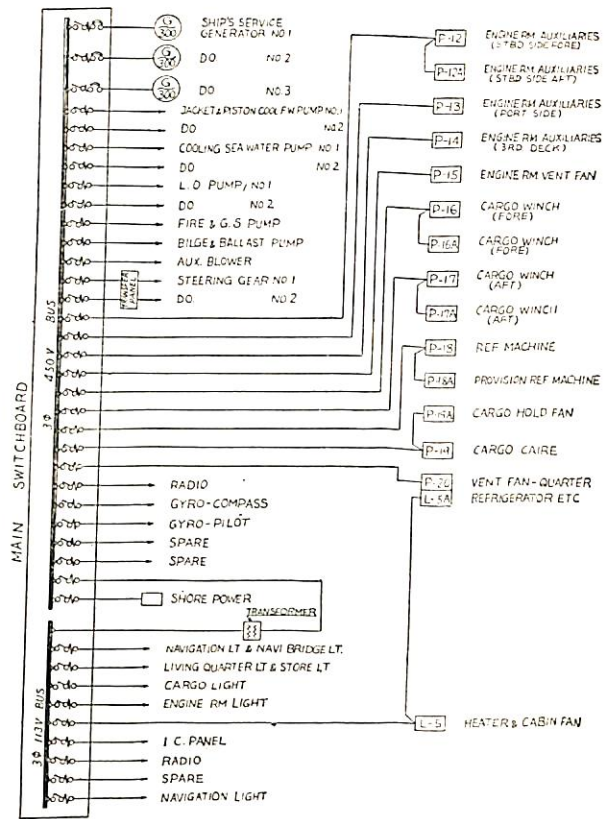 G
300
SHIP'S SERVICE
GENERATOR NO 1
G
300
DO NO 2
G
300
DO NO.3
JACKET & PISTON COOL F W PUMP NO.1
DO NO2
COOLING SEA WATER PUMP NO 1
DO NO 2
L.O PUMP, NO 1
DO NO 2
FIRE & G.S PUMP
BILGE & BALLAST PUMP
AUX. BLOWER
STEERING GEAR NO 1
PANEL
DO. NO 2
MAIN SWITCHBOARD
3Φ 450V BUS
RADIO
GYRO-COMPASS
GYRO-PILOT
SPARE
SPARE
SHORE POWER
TRANSFORMER
3Φ 113V BUS
NAVIGATION LT & NAVI BRIDGE LT.
LIVING QUARTER LT & STORE LT
CARGO LIGHT
ENGINE RM LIGHT
I C. PANEL
RADIO
SPARE
NAVIGATION LIGHT
P-12 ENGINE RM AUXILIARIES
(STBD SIDE FORE)
P-12A ENGINE RM AUXILIARIES
(STBD SIDE AFT)
P-13 ENGINE RM AUXILIARIES
(PORT SIDE)
P-14 ENGINE RM AUXILIARIES
(3RD DECK)
P-15 ENGINE RM VENT FAN
P-16 CARGO WINCH
(FORE)
P-16A CARGO WINCH
(FORE)
P-17 CARGO WINCH
(AFT)
P-17A CARGO WINCH
(AFT)
P-18 REF MACHINE
P-18A PROVISION REF MACHINE
P-19A CARGO HOLD FAN
P-19 CARGO CAIRE
P-20 VENT FAN-QUARTER
L-5A REFRIGERATOR ETC
L-5 HEATER & CABIN FAN